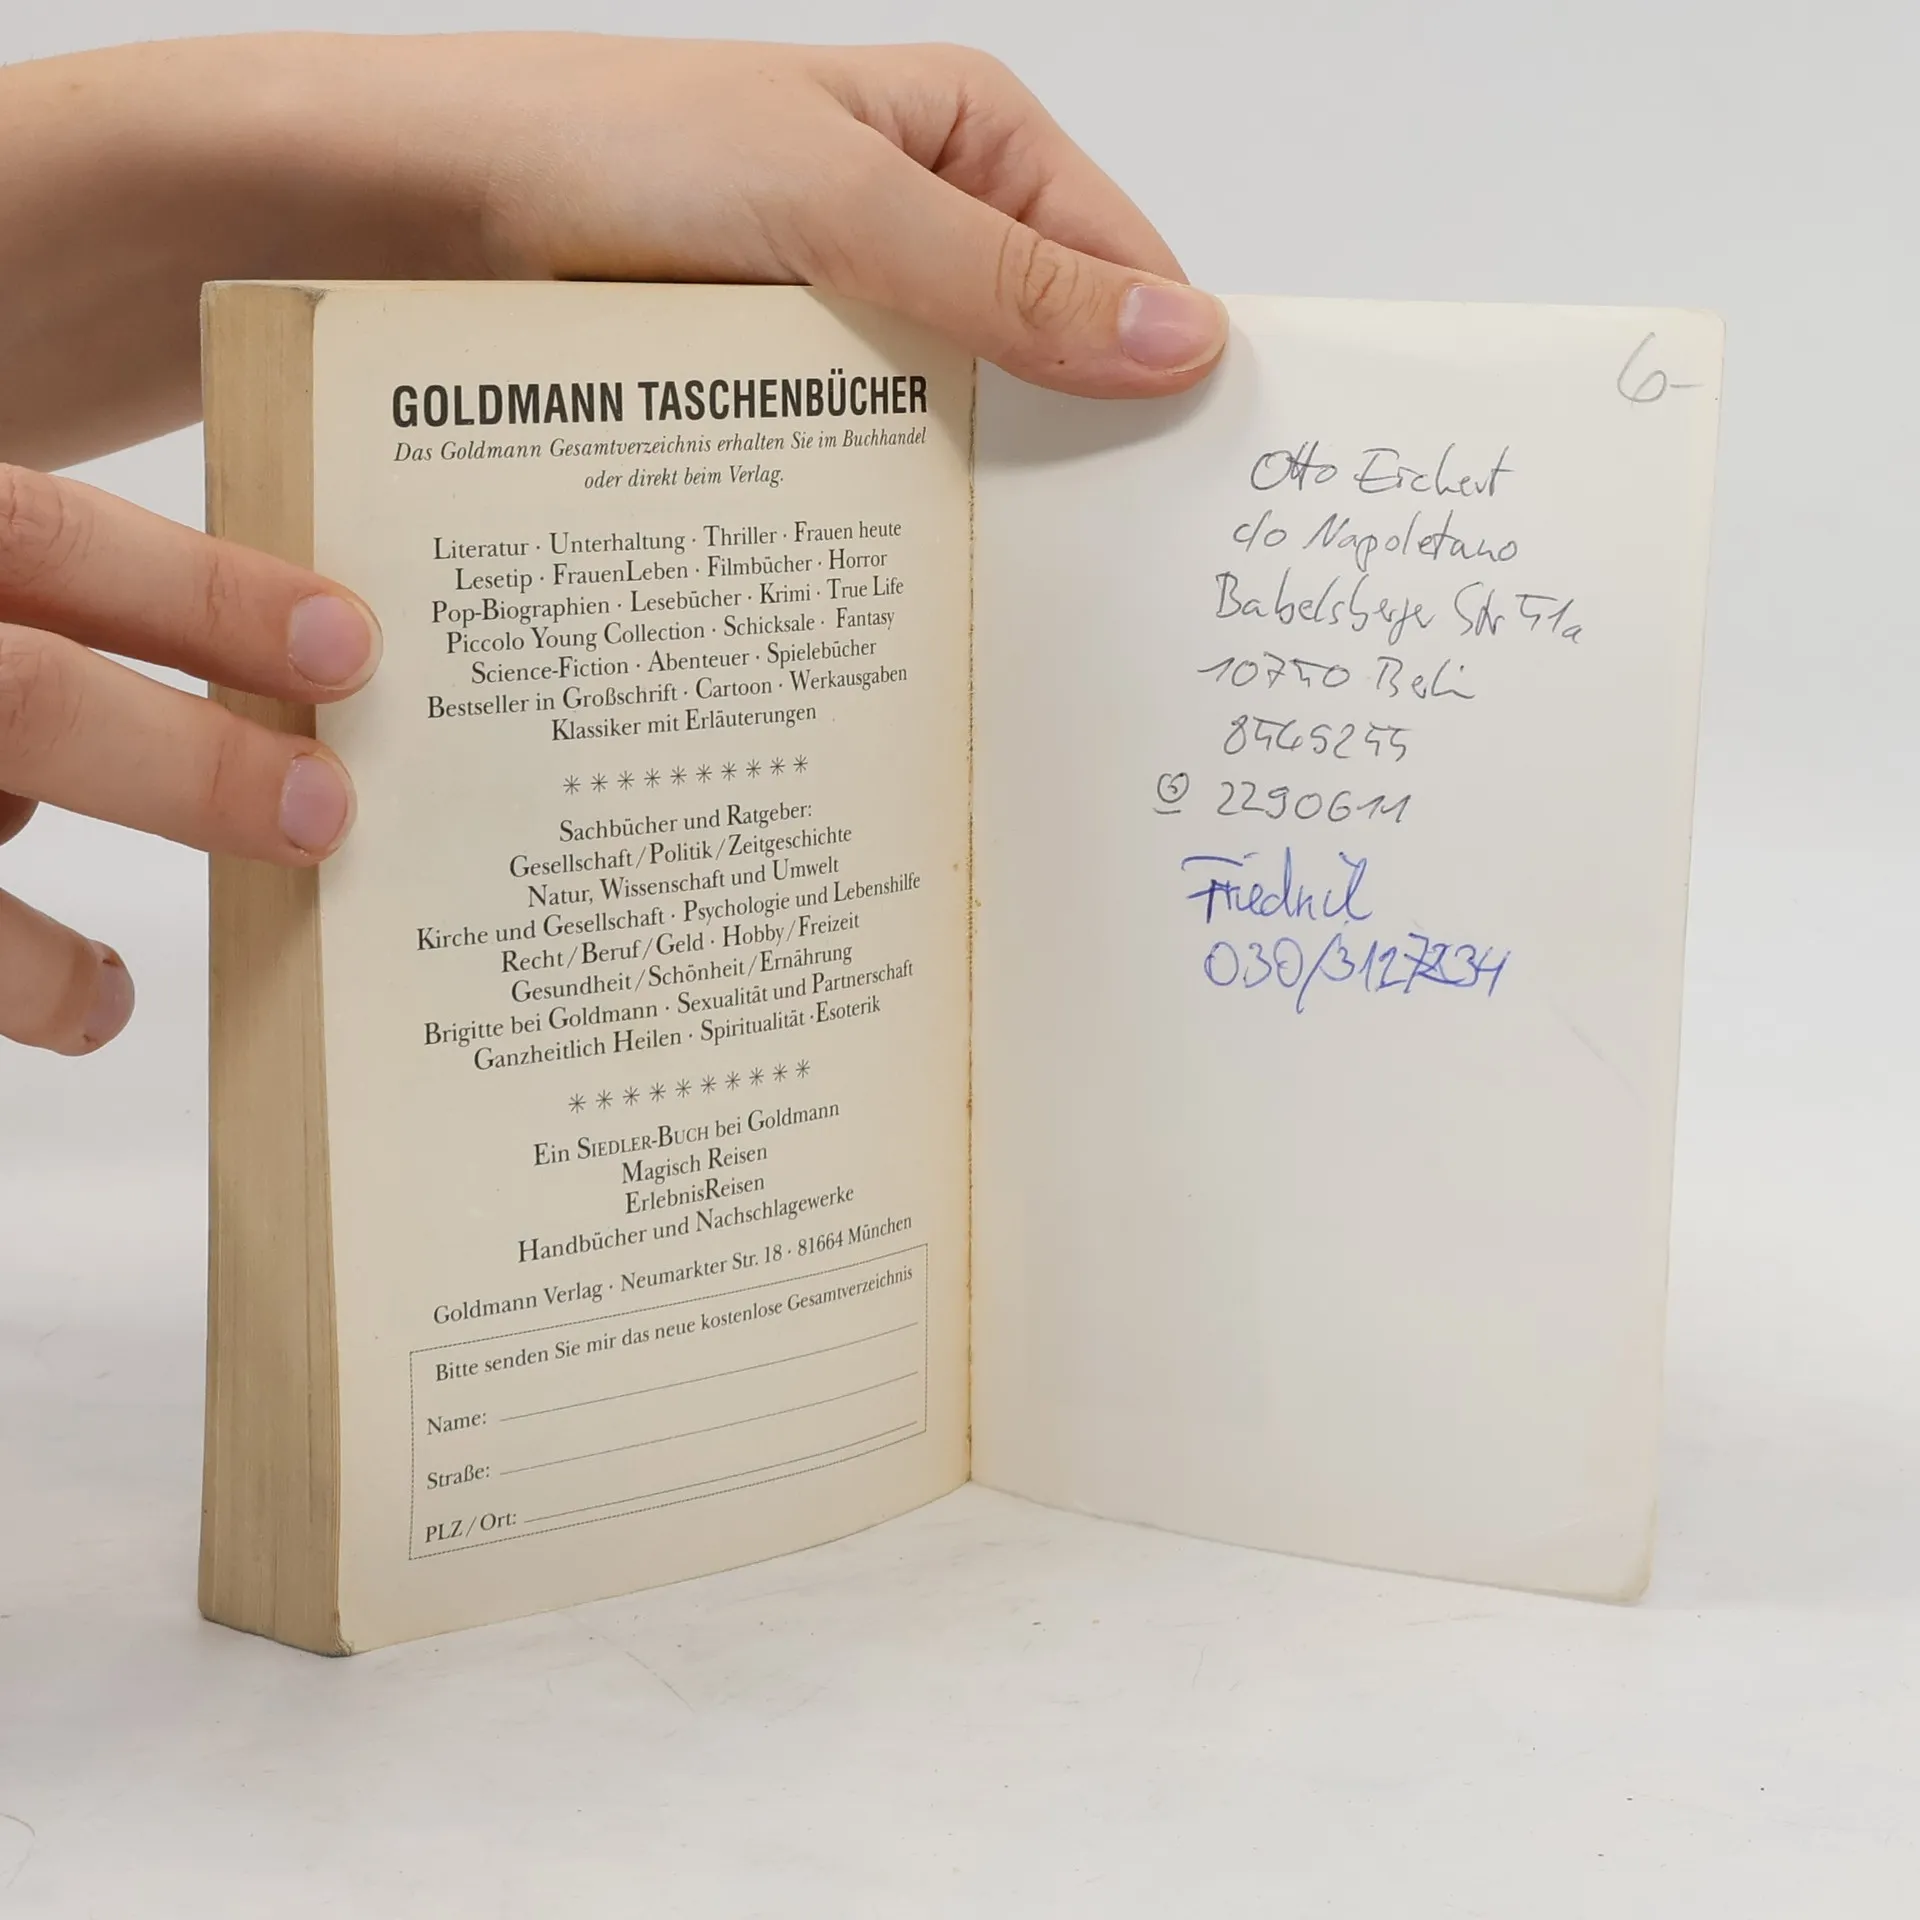 GOLDMANN TASCHENBÜCHER
Das Goldmann Gesamtverzeichnis erhalten Sie im Buchhandel
oder direkt beim Verlag.
Literatur · Unterhaltung · Thriller · Frauen heute
Lesetip · FrauenLeben · Filmbücher · Horror
Pop-Biographien · Lesebücher · Krimi · True Life
Piccolo Young Collection · Schicksale · Fantasy
Science-Fiction · Abenteuer · Spielebücher
Bestseller in Großschrift · Cartoon · Werkausgaben
Klassiker mit Erläuterungen
* * * * * * * * * *
Sachbücher und Ratgeber:
Gesellschaft/Politik/Zeitgeschichte
Natur, Wissenschaft und Umwelt
Kirche und Gesellschaft · Psychologie und Lebenshilfe
Recht/Beruf/Geld · Hobby/Freizeit
Gesundheit/Schönheit/Ernährung
Brigitte bei Goldmann · Sexualität und Partnerschaft
Ganzheitlich Heilen · Spiritualität · Esoterik
* * * * * * * * * *
Ein SIEDLER-BUCH bei Goldmann
Magisch Reisen
ErlebnisReisen
Handbücher und Nachschlagewerke
Goldmann Verlag · Neumarkter Str. 18 · 81664 München
Bitte senden Sie mir das neue kostenlose Gesamtverzeichnis
Name:
Straße:
PLZ/Ort:
6-
Otto Eichert
c/o Napoletano
Babelsberger Str 51a
Berlin
2290611